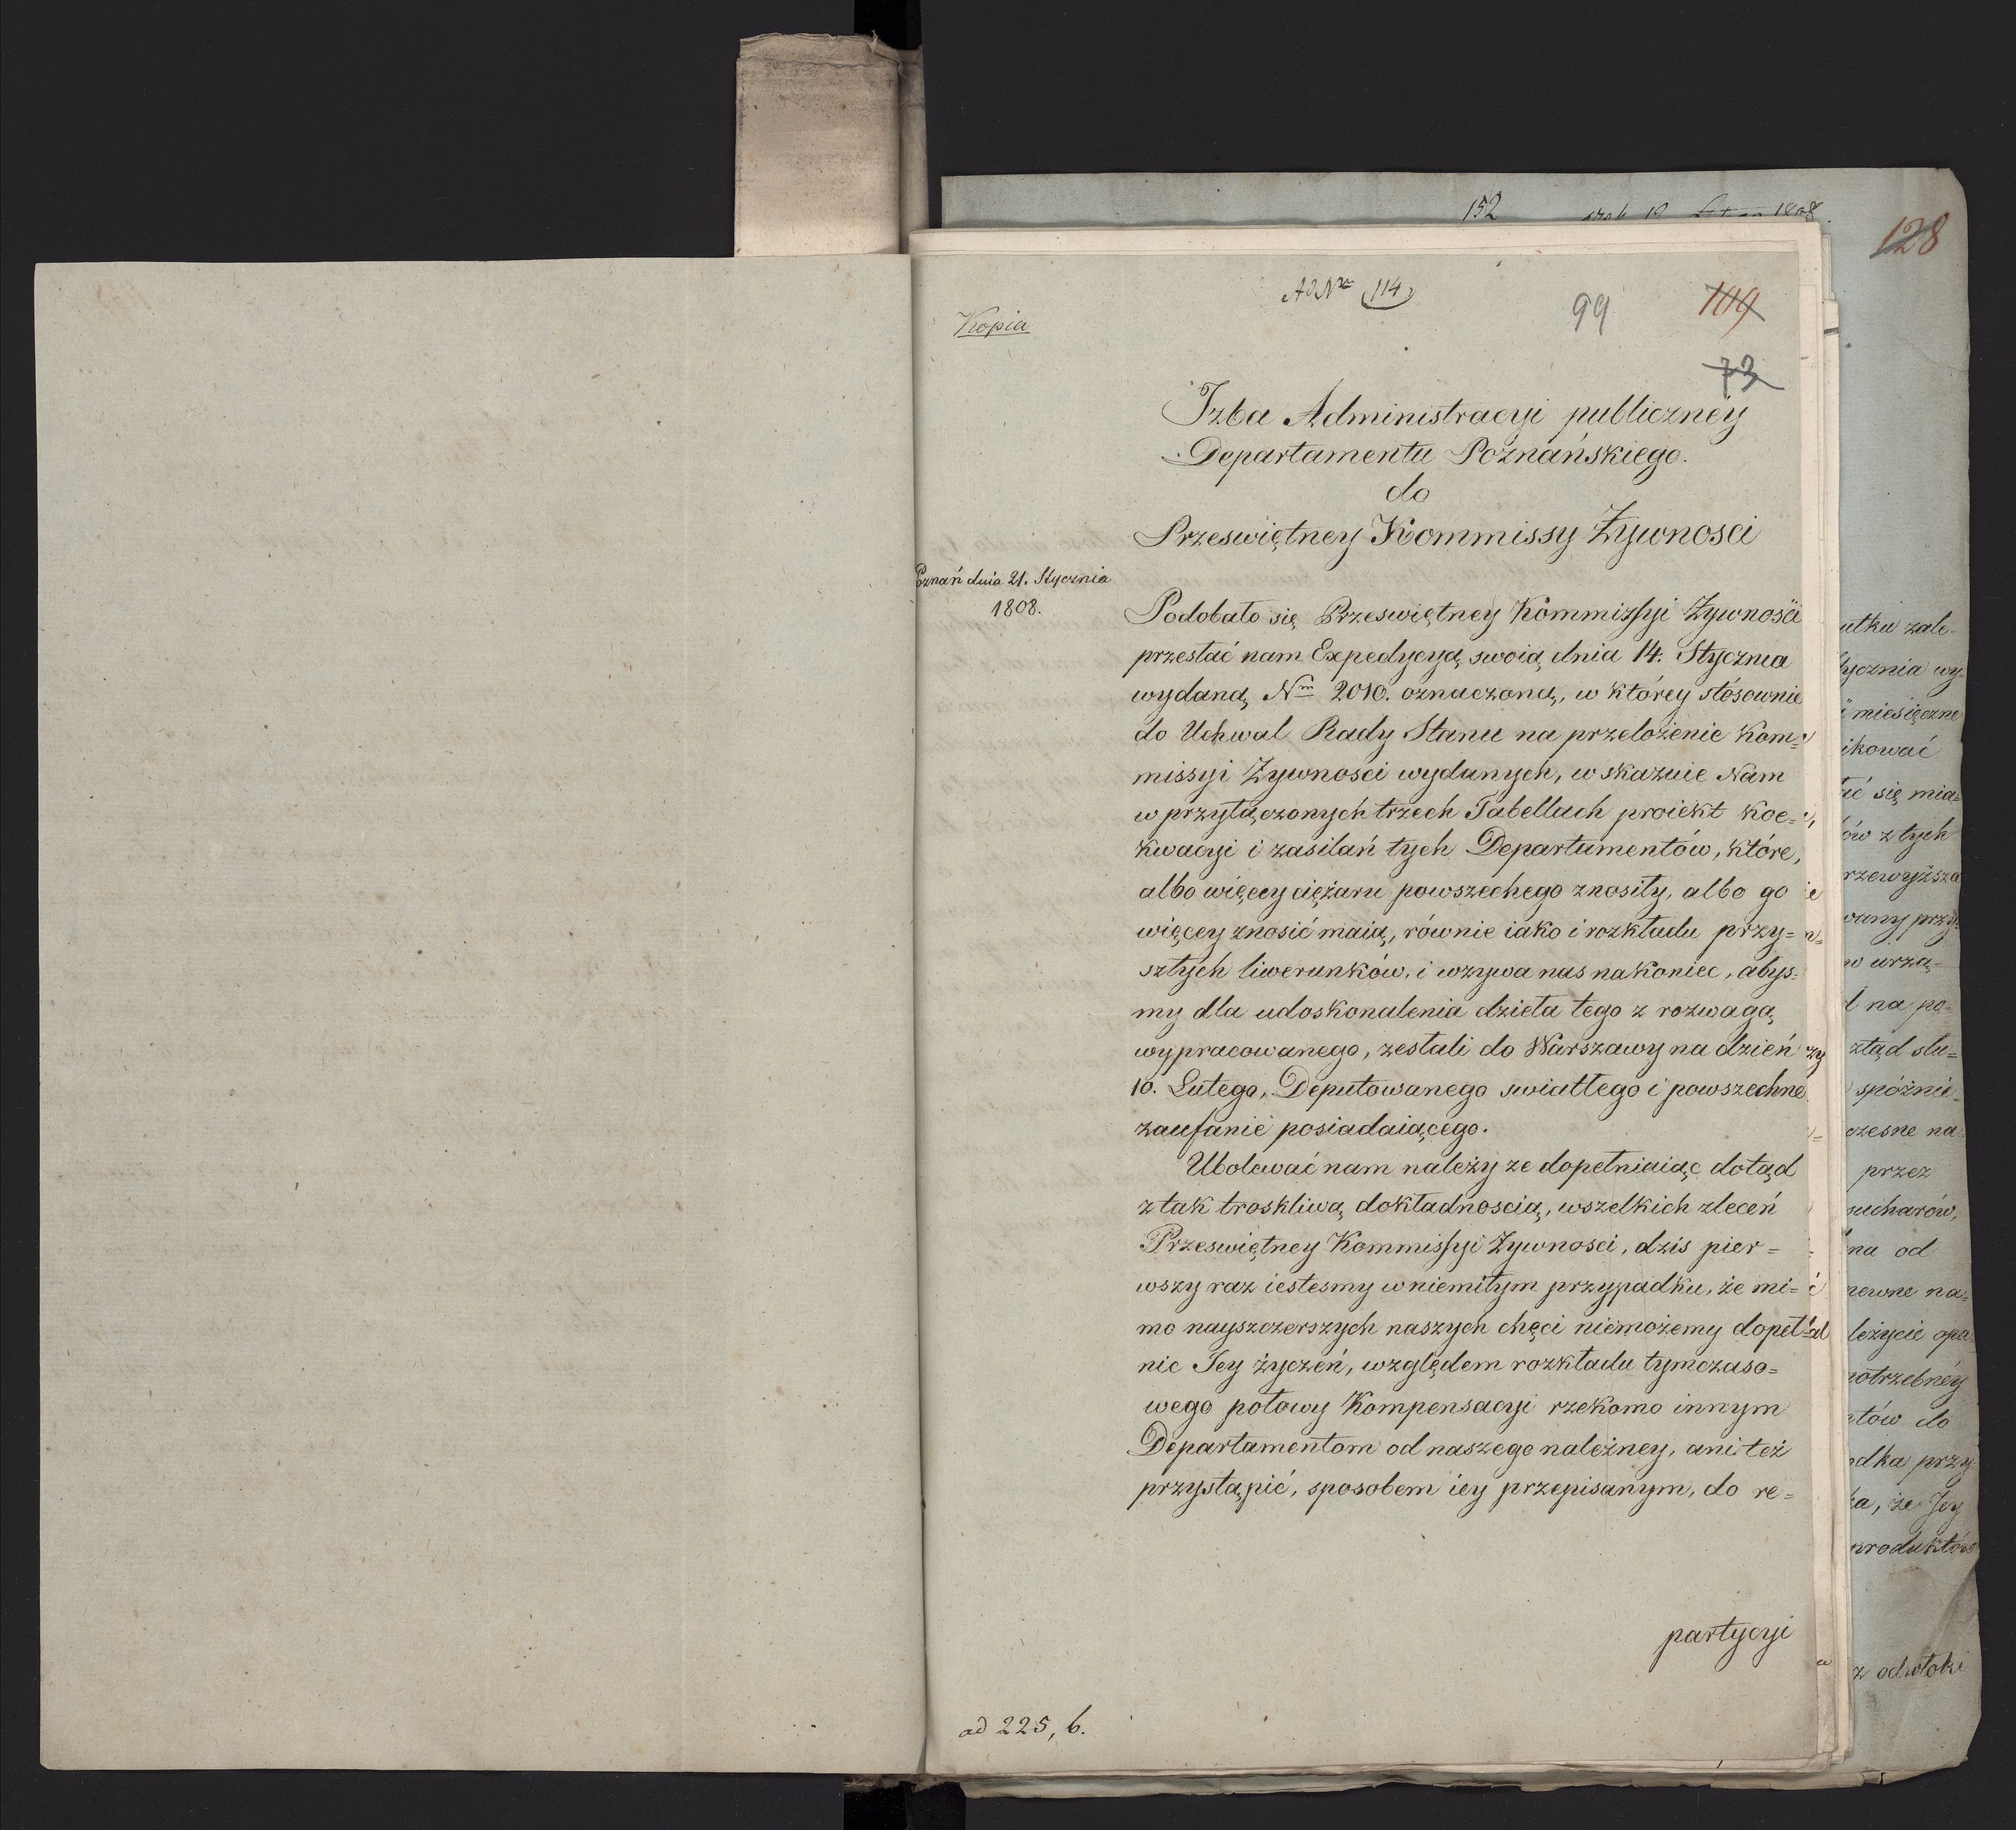 152
1808.
128
Ad Nrm 114
99
109
73
Kopia
Izba Administracyi publiczney
Departamentu Poznańskiego.
do
Przeswiętney Kommissy Żywnosci
Poznań dnia 21. Stycznia
1808.
Podobało się Przeswiętney Kommissyi Żywności
przesłać nam Expedycyą swoią dnia 14. Stycznia
wydaną Nm 2010. oznaczoną, w którey stósownie
do Uchwał Rady Stanu na przełożenie Kom=
missyi Żywnosci wydanych, wskazuie Nam
w przyłączonych trzech Tabellach proiekt koe=
kwacyi i zasilań tych Departamentów, które,
albo więcey ciężaru powszechego znosiły, albo go
więcey znosić maią, równie iako i rozkładu przy=
szłych liwerunków, i wzywa nas nakoniec, abys=
my dla udoskonalenia dzieła tego z rozwagą
wypracowanego, zesłali do Warszawy na dzień
10. Lutego, Deputowanego swiatłego i powszechne
zaufanie posiadaiącego.
Ubolewać nam należy ze dopełniaiąc dotąd
z tak troskliwą dokładnoscią, wszelkich zleceń
Przeswiętney Kommissyi Żywnosci, dzis pier=
wszy raz iestesmy w niemiłym przypadku, że mi=
mo nayszczerszych naszych chęci niemożemy dopeł=
nic Jey życzeń, względem rozkładu tymczaso=
wego połowy Kompensacyi rzekomo innym
Departamentom od naszego należney, ani też
przystąpić, sposobem iey przepisanym, do re=
partycyi
ad 225, b.
utku zale=
tycznia wy=
miesięczne
ikować
ać się mia=
ów z tych
rzewyższa
wany przy=
w urzą=
na po=
ztąd słu=
spóźnie=
czesne na
przez
sucharów,
na od
pewne na=
leżycie opa=
potrzebnéy
któw do
odka przy
ka, że Jey
produktów
z odwłoki